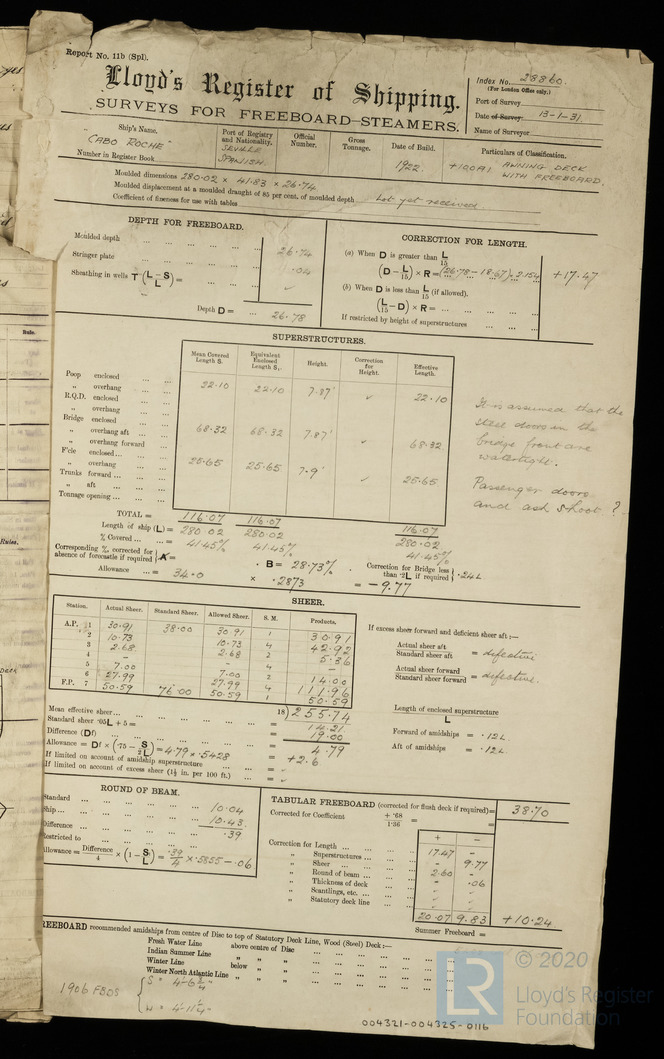 Report No. 11b (Spl).
Lloyd's Register of Shipping.
SURVEYS FOR FREEBOARD—STEAMERS.
Index No. 28860.
(For London Office only.)
Port of Survey
Date of Survey 13-1-31
Name of Surveyor
Ship's Name. Port of Registry and Nationality. Official Number. Gross Tonnage. Date of Build. Particulars of Classification.
"CABO ROCHE" SEVILLE SPANISH 1922 +100A1 AWNING DECK WITH FREEBOARD.
Number in Register Book
Moulded dimensions 280.02 × 41.83 × 26.74
Moulded displacement at a moulded draught of 85 per cent. of moulded depth
Coefficient of fineness for use with tables Not yet received
DEPTH FOR FREEBOARD.
Moulded depth ... 26.74
Stringer plate ... .04
Sheathing in wells T (L−S / L) =
Depth D = ... 26.78
CORRECTION FOR LENGTH.
(a) When D is greater than L/15
(D − L/15) × R = (26.78 − 18.67) × 2.154 +17.47
(b) When D is less than L/15 (if allowed).
(L/15 − D) × R =
If restricted by height of superstructures
SUPERSTRUCTURES.
Mean Covered Length S. Equivalent Enclosed Length S₁. Height. Correction for Height. Effective Length.
Poop enclosed 22.10 22.10 7.87' ✓ 22.10
" overhang
R.Q.D. enclosed
" overhang
Bridge enclosed 68.32 68.32 7.87' ✓ 68.32
" overhang aft
" overhang forward
F'cle enclosed 25.65 25.65 7.9' ✓ 25.65
" overhang
Trunks forward
" aft
Tonnage opening
It is assumed that the
steel doors in the
bridge front are
watertight.
Passenger doors
and ash shoot ?
TOTAL = 116.07 116.07 116.07
Length of ship (L) = 280.02 280.02 280.02
% Covered = 41.45% 41.45% 41.45%
Corresponding %, corrected for absence of forecastle if required } A = . B = 28.73% . Correction for Bridge less than .2L if required } .24L
Allowance = 34.0 × .2873 = −9.77
SHEER.
Station. Actual Sheer. Standard Sheer. Allowed Sheer. S. M. Products.
A.P. 1 30.91 38.00 30.91 1 30.91
2 10.73 10.73 4 42.92
3 2.68 2.68 2 5.36
4 - - 4 -
5 7.00 7.00 2 14.00
6 27.99 27.99 4 111.96
F.P. 7 50.59 76.00 50.59 1 50.59
18) 255.74
Mean effective sheer 14.21
Standard sheer .05L + 5 = 19.00
Difference (Df) 4.79
Allowance = Df × (.75 − S/2L) = 4.79 × .5428 = +2.6
If limited on account of amidship superstructure =
If limited on account of excess sheer (1½ in. per 100 ft.) =
If excess sheer forward and deficient sheer aft :—
Actual sheer aft / Standard sheer aft = defective
Actual sheer forward / Standard sheer forward = defective.
Length of enclosed superstructure / L
Forward of amidships = .12L
Aft of amidships = .12L
ROUND OF BEAM.
Standard 10.04
Ship 10.43
Difference .39
Restricted to
Allowance = Difference/4 × (1 − S/L) = .39/4 × .5855 − .06
TABULAR FREEBOARD (corrected for flush deck if required) = 38.70
Corrected for Coefficient + .68 / 1.36 =
+ −
Correction for Length 17.47 -
" Superstructures - 9.77
" Sheer 2.60 -
" Round of beam - .06
" Thickness of deck
" Scantlings, etc.
" Statutory deck line
20.07 9.83 +10.24
Summer Freeboard =
FREEBOARD recommended amidships from centre of Disc to top of Statutory Deck Line, Wood (Steel) Deck :—
Fresh Water Line above centre of Disc
Indian Summer Line " " "
Winter Line below " "
Winter North Atlantic Line " " "
1906 FBDS
004321-004325-0116
LR © 2020
Lloyd's Register
Foundation